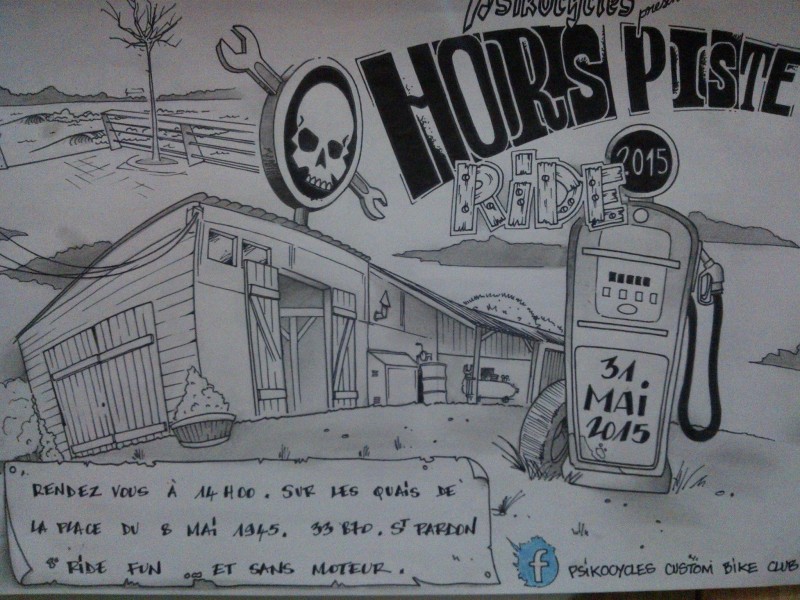 Psikocycles présen
HORS PISTE
RIDE
2015
31
MAI
2015
RENDEZ VOUS À 14H00. SUR LES QUAIS DE
LA PLACE DU 8 MAI 1945. 33 870. ST PARDON
8° RIDE FUN ... ET SANS MOTEUR.
f PSIKOCYCLES CUSTOM BIKE CLUB